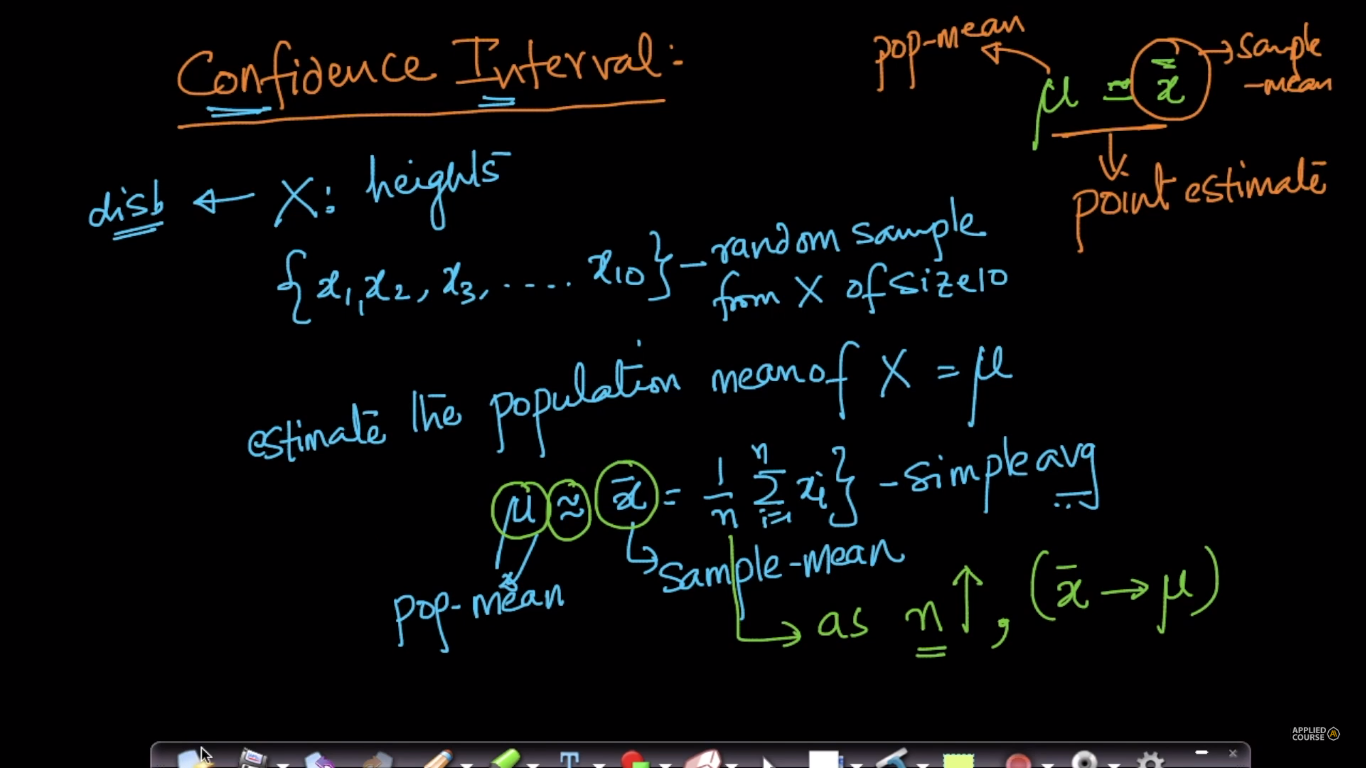 Confidence Interval:
pop-mean
μ ≈ x̄
sample
-mean
point estimate
disb ← X: heights
{x₁, x₂, x₃, ..... x₁₀} - random sample
from X of size 10
estimate the population mean of X = μ
μ ≈ x̄ = 1/n Σᵢ₌₁ⁿ xᵢ} - simple avg
pop-mean
sample-mean
as n↑, (x̄ → μ)
APPLIED
COURSE